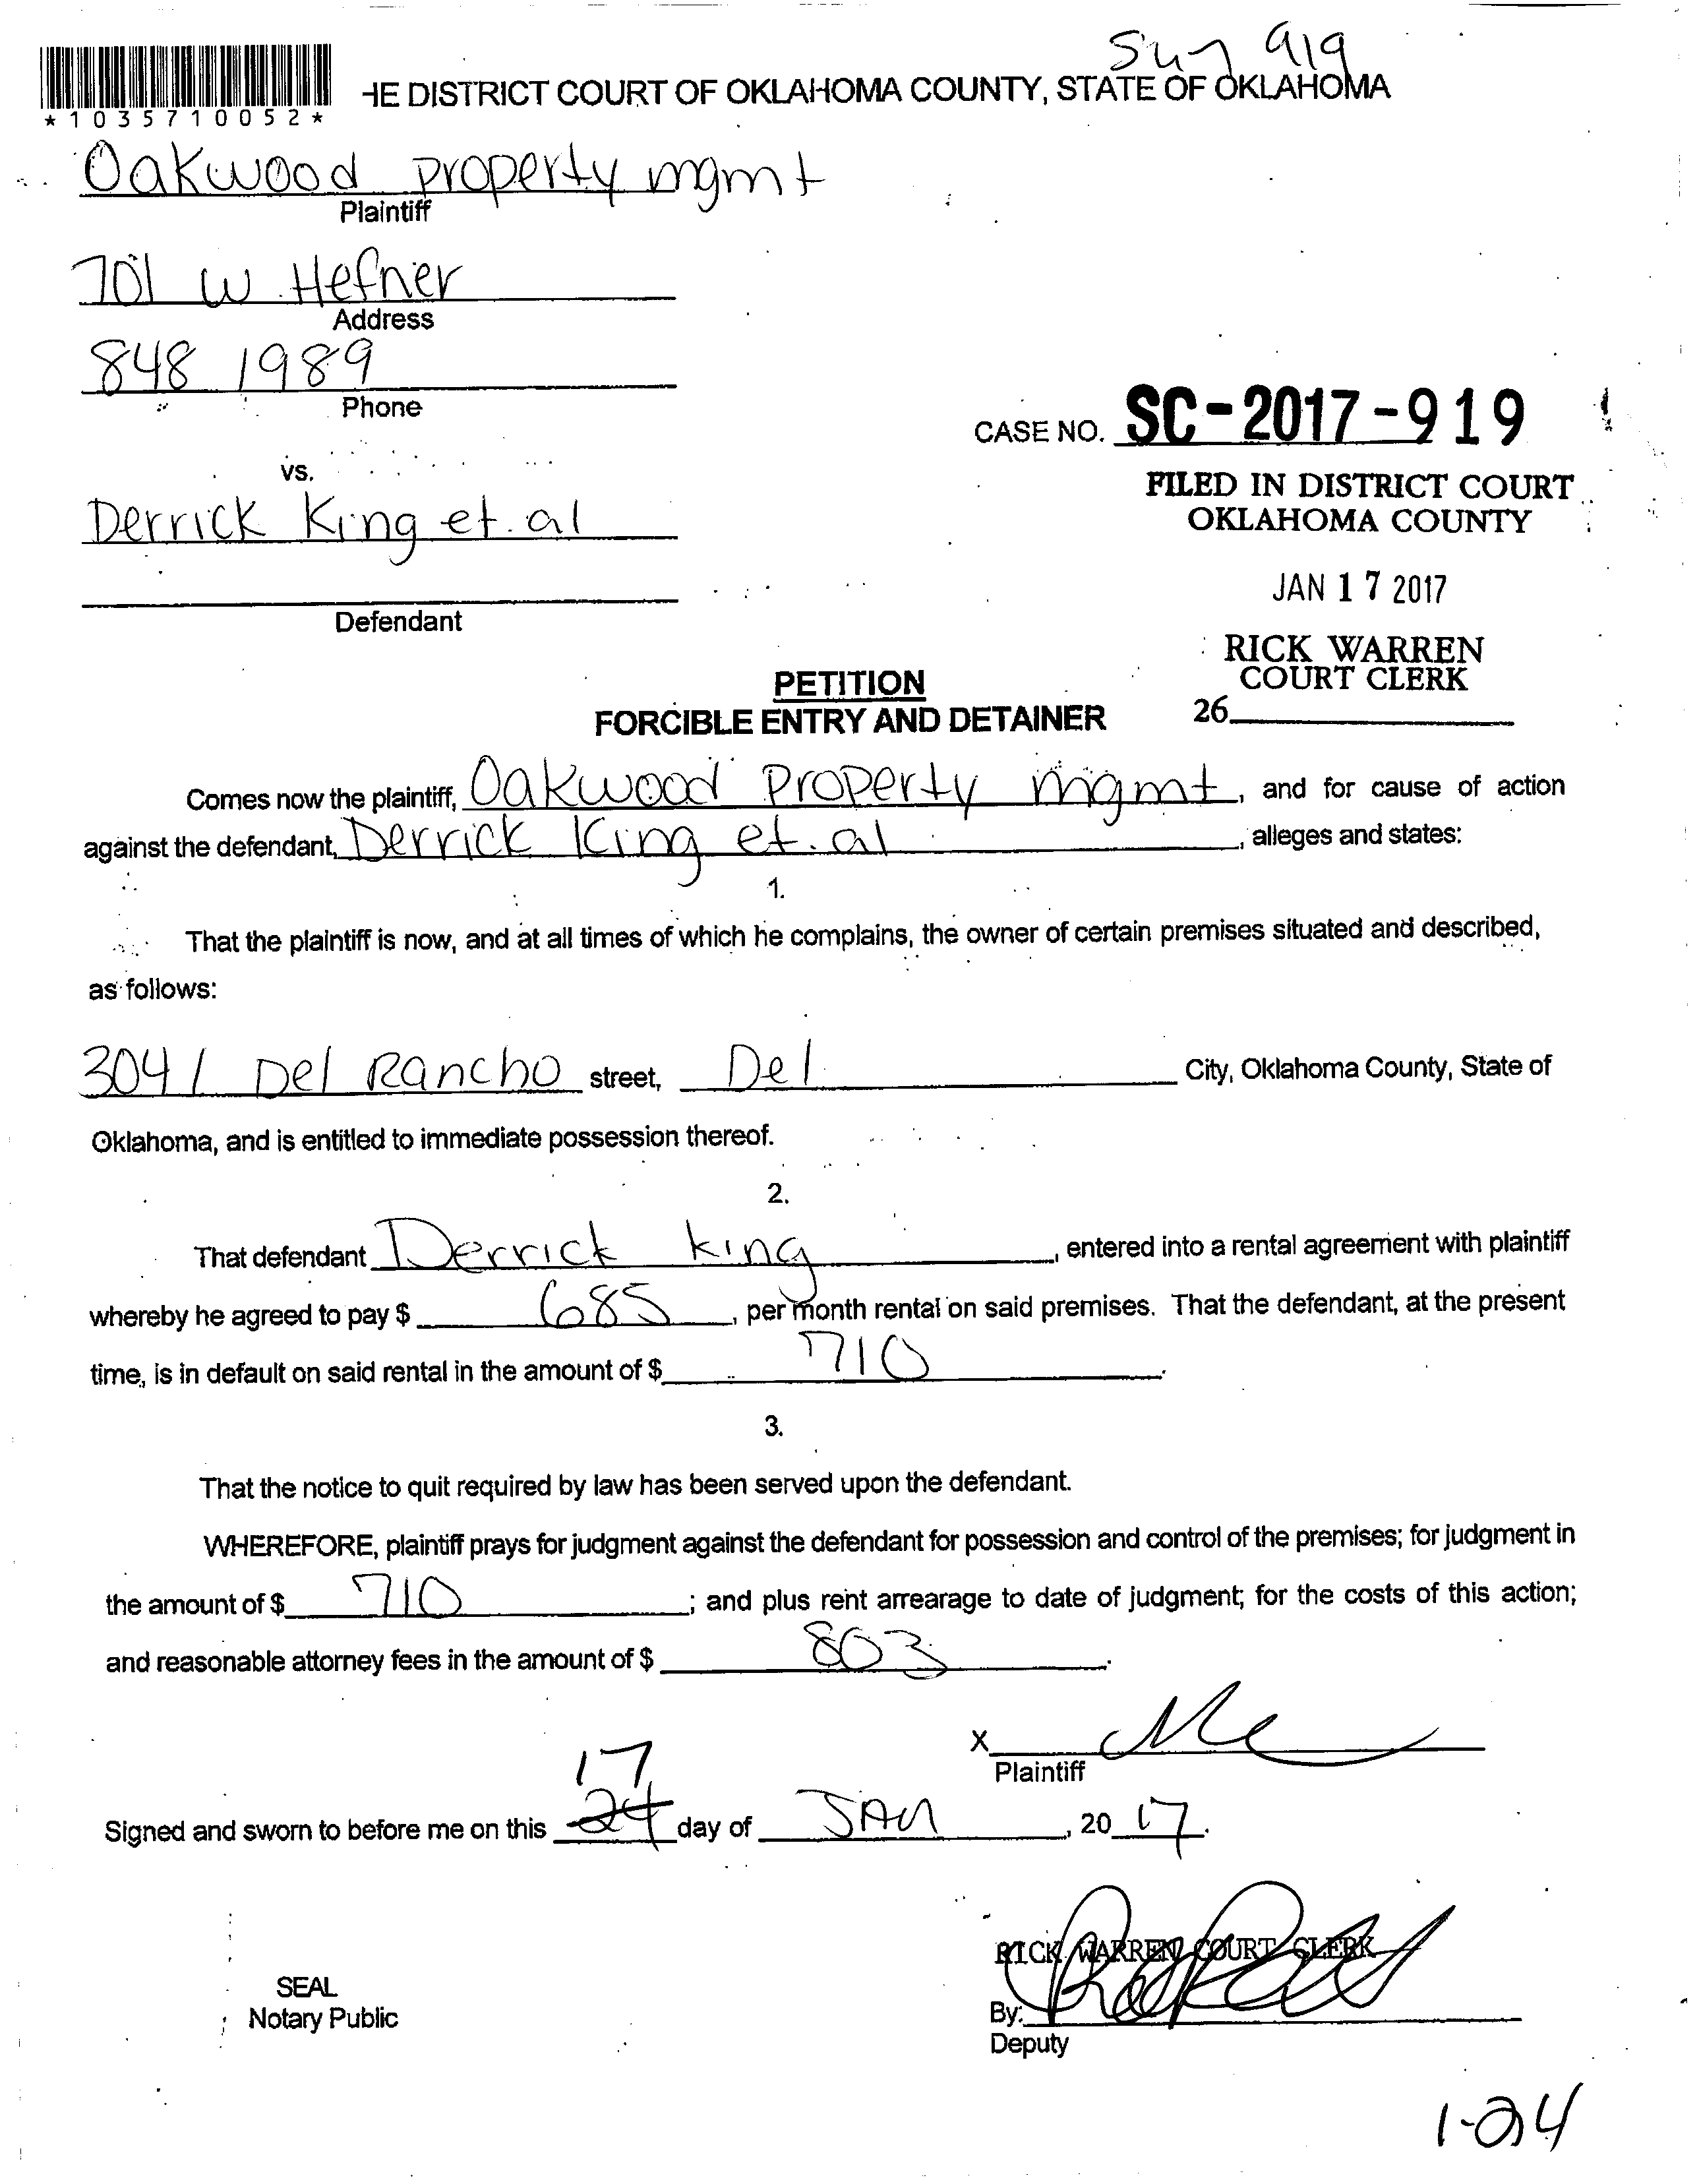 919
HE DISTRICT COURT OF OKLAHOMA COUNTY, STATE OF OKLAHOMA
*1035710052*
Oakwood property mgmt
Plaintiff
701 W Hefner
Address
848 1989
Phone
CASE NO. SC-2017-919
vs.
FILED IN DISTRICT COURT
OKLAHOMA COUNTY
Derrick King et. al
JAN 17 2017
Defendant
RICK WARREN
COURT CLERK
26
PETITION
FORCIBLE ENTRY AND DETAINER
Comes now the plaintiff, Oakwood Property mgmt, and for cause of action
against the defendant, Derrick King et. al, alleges and states:
1.
That the plaintiff is now, and at all times of which he complains, the owner of certain premises situated and described,
as follows:
3041 Del Rancho street, Del City, Oklahoma County, State of
Oklahoma, and is entitled to immediate possession thereof.
2.
That defendant Derrick King, entered into a rental agreement with plaintiff
whereby he agreed to pay $ 685, per month rental on said premises. That the defendant, at the present
time, is in default on said rental in the amount of $ 710.
3.
That the notice to quit required by law has been served upon the defendant.
WHEREFORE, plaintiff prays for judgment against the defendant for possession and control of the premises; for judgment in
the amount of $ 710; and plus rent arrearage to date of judgment; for the costs of this action;
and reasonable attorney fees in the amount of $ 803.
X
Plaintiff
17
Signed and sworn to before me on this 24 day of JAN, 20 17.
RICK WARREN COURT CLERK
SEAL
Notary Public
By:
Deputy
1-24